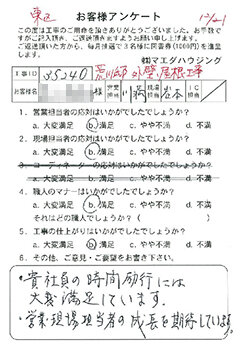 東区
お客様アンケート
12/21
この度は工事のご用命を頂きありがとうございました。お手数で
すがご記入頂き、ご返送頂きますようお願い申し上げます。
ご返送頂いた方から、毎月抽選で3名様に図書券(1000円)を進呈
します。
㈱マエダハウジング
工事ID 35240 外壁・屋根工事
お客様名 様 営業担当 現場担当 IC担当
1. 営業担当者の応対はいかがでしたでしょうか?
a. 大変満足 b. 満足 c. やや不満 d. 不満
2. 現場担当者の応対はいかがでしたでしょうか?
a. 大変満足 b. 満足 c. やや不満 d. 不満
3. コーディネーターの応対はいかがでしたでしょうか?
a. 大変満足 b. 満足 c. やや不満 d. 不満
4. 職人のマナーはいかがでしたでしょうか?
a. 大変満足 b. 満足 c. やや不満 d. 不満
それはどの職人でしょうか? ( )
5. 工事の仕上がりはいかがでしたでしょうか?
a. 大変満足 b. 満足 c. やや不満 d. 不満
6. その他、ご意見・ご要望をお書き下さい。
・貴社員の時間励行には
大変満足しています。
・営業・現場担当者の成長を期待しています。